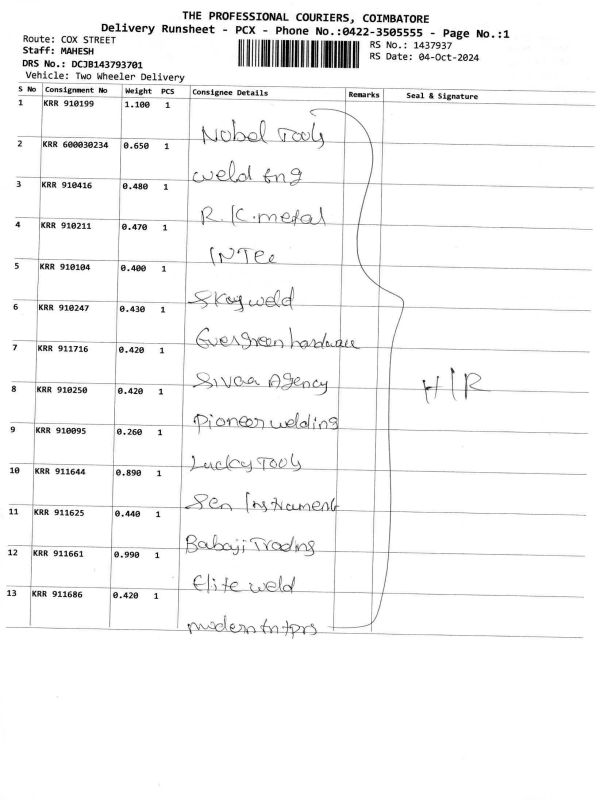 THE PROFESSIONAL COURIERS, COIMBATORE
Delivery Runsheet - PCX - Phone No.:0422-3505555 - Page No.:1
Route: COX STREET
RS No.: 1437937
Staff: MAHESH
RS Date: 04-Oct-2024
DRS No.: DCJB143793701
Vehicle: Two Wheeler Delivery
S No Consignment No Weight PCS Consignee Details Remarks Seal & Signature
1 KRR 910199 1.100 1
Nobel Tools
2 KRR 600030234 0.650 1
weld Eng
3 KRR 910416 0.480 1
R.K.metal
4 KRR 910211 0.470 1
INTec
5 KRR 910104 0.400 1
weld
6 KRR 910247 0.430 1
Evergreen hardware
7 KRR 911716 0.420 1
Sivaa Agency
8 KRR 910250 0.420 1
H/R
Pioneer welding
9 KRR 910095 0.260 1
Lucky Tools
10 KRR 911644 0.890 1
Sen Instrument
11 KRR 911625 0.440 1
Babaji Trading
12 KRR 911661 0.990 1
Elite weld
13 KRR 911686 0.420 1
modern Entprs